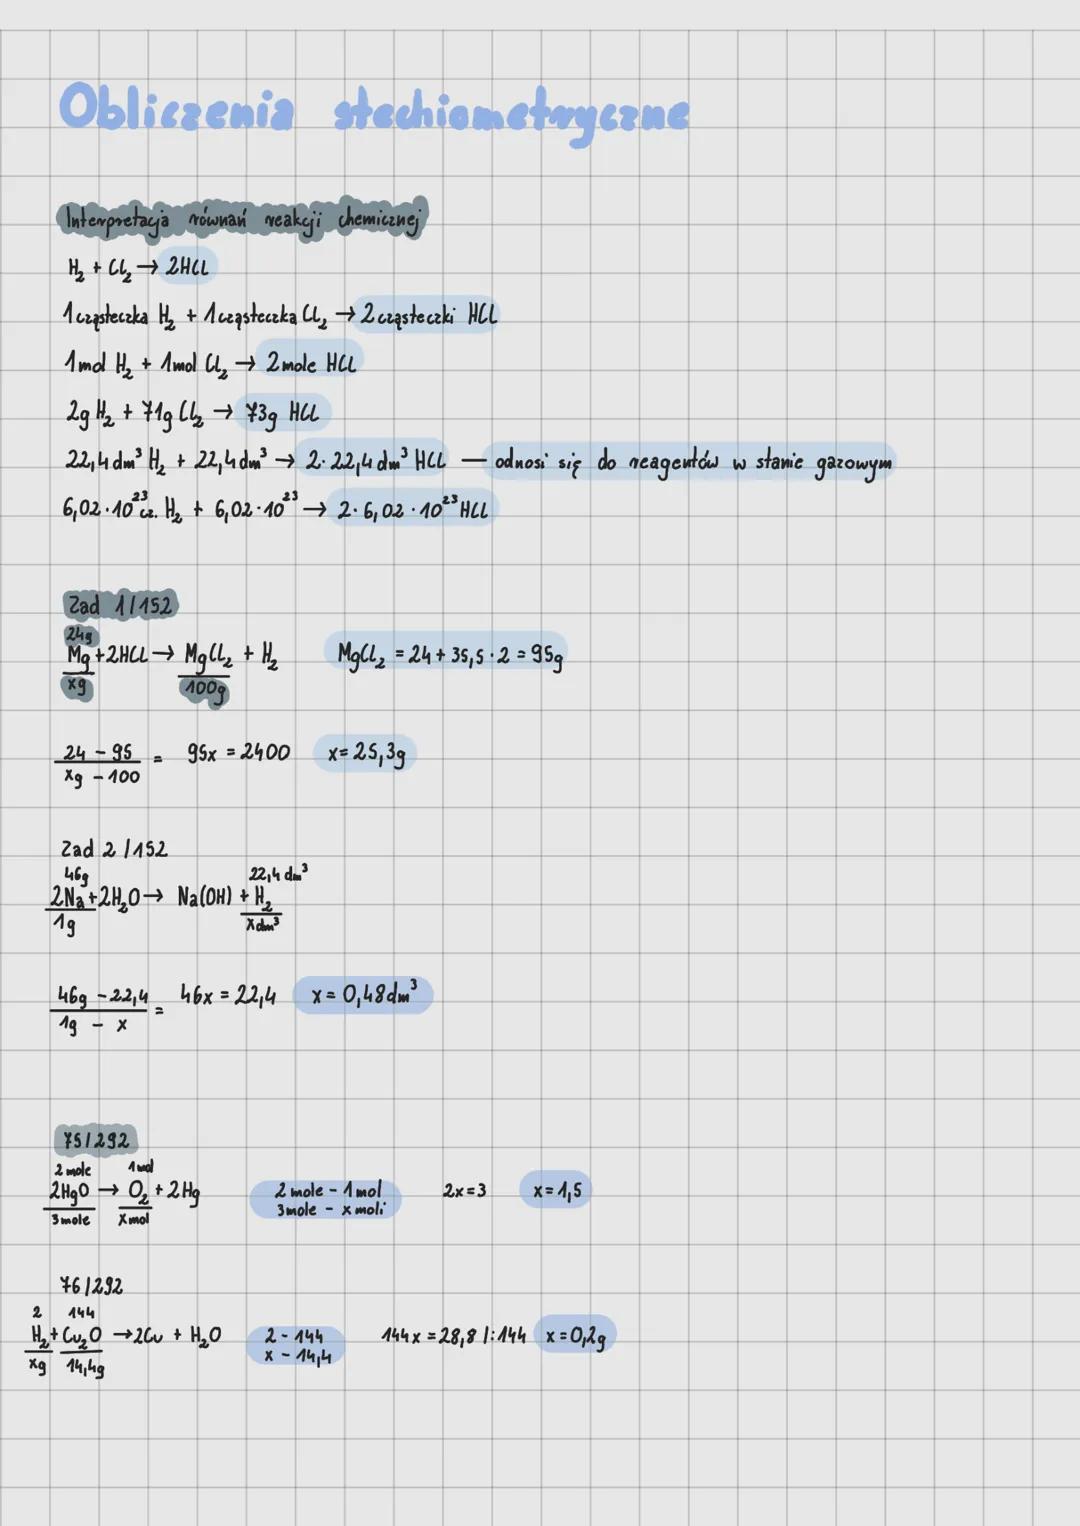 Obliczenia stechiometryczne
Interpretacja równań reakcji chemicznej
H₂ + Cl₂ → 2HCl
1 cząsteczka H₂ + 1 cząsteczka Cl₂ → 2 cząsteczki HCl
1 mol H₂ + 1 mol Cl₂ → 2 mole HCl
2g H₂ + 71g Cl₂ → 73g HCl
22,4 dm³ H₂ + 22,4 dm³ → 2·22,4 dm³ HCl — odnosi się do reagentów w stanie gazowym
6,02·10²³ cz. H₂ + 6,02·10²³ → 2·6,02·10²³ HCl
Zad 1/152
24g
Mg + 2HCl → MgCl₂ + H₂ MgCl₂ = 24 + 35,5·2 = 95g
xg 100g
24 – 95 = 95x = 2400 x = 25,3g
xg – 100
Zad 2/152
46g 22,4 dm³
2Na + 2H₂O → Na(OH) + H₂
1g x dm³
46g – 22,4 = 46x = 22,4 x = 0,48 dm³
1g – x
75/292
2 mole 1 mol
2HgO → O₂ + 2Hg 2 mole – 1 mol 2x = 3 x = 1,5
3 mole x mol 3 mole – x moli
76/292
2 144
H₂ + Cu₂O → 2Cu + H₂O 2 – 144 144x = 28,8 /:144 x = 0,2g
xg 14,4g x – 14,4